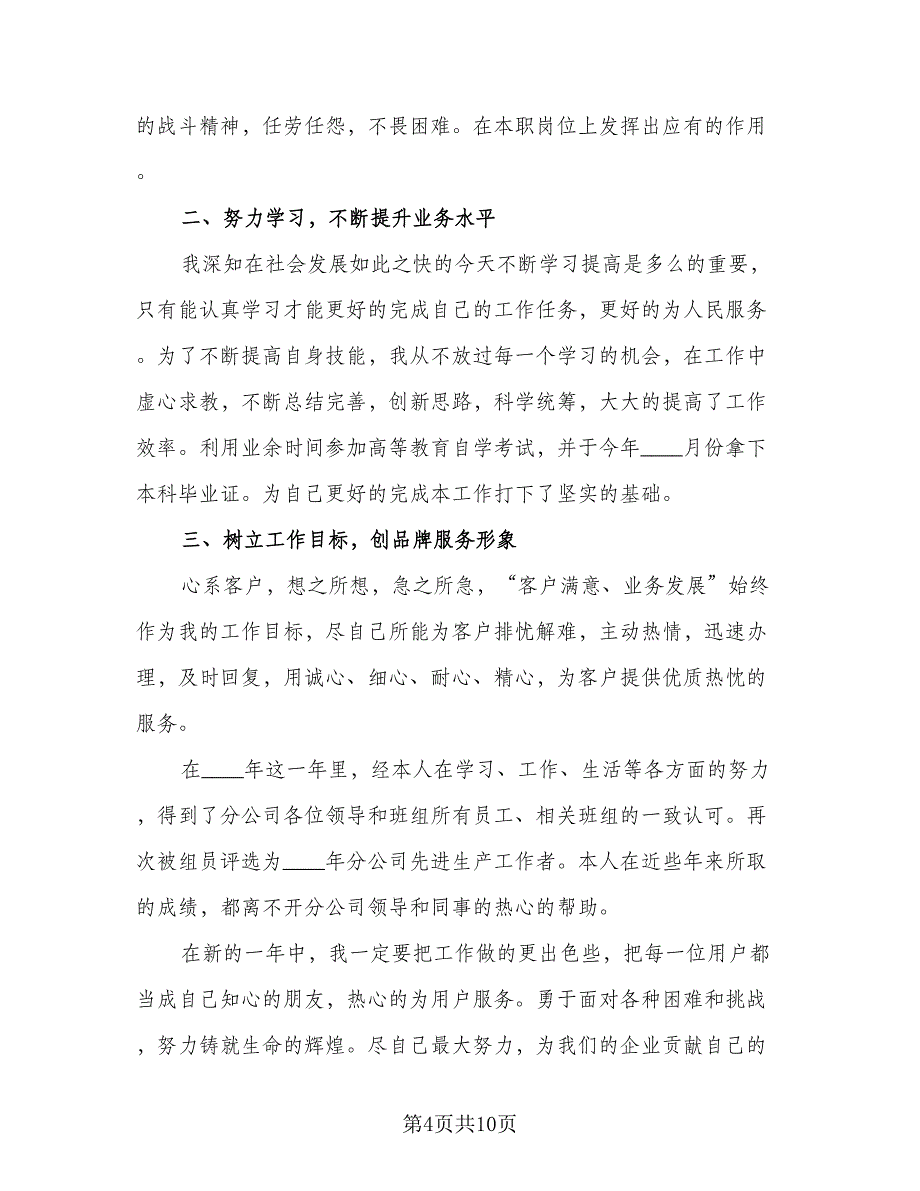 的战斗精神，任劳任怨，不畏困难。在本职岗位上发挥出应有的作用
。
二、努力学习，不断提升业务水平
我深知在社会发展如此之快的今天不断学习提高是多么的重要，
只有能认真学习才能更好的完成自己的工作任务，更好的为人民服务
。为了不断提高自身技能，我从不放过每一个学习的机会，在工作中
虚心求教，不断总结完善，创新思路，科学统筹，大大的提高了工作
效率。利用业余时间参加高等教育自学考试，并于今年____月份拿下
本科毕业证。为自己更好的完成本工作打下了坚实的基础。
三、树立工作目标，创品牌服务形象
心系客户，想之所想，急之所急，“客户满意、业务发展”始终
作为我的工作目标，尽自己所能为客户排忧解难，主动热情，迅速办
理，及时回复，用诚心、细心、耐心、精心，为客户提供优质热忱的
服务。
在____年这一年里，经本人在学习、工作、生活等各方面的努力
，得到了分公司各位领导和班组所有员工、相关班组的一致认可。再
次被组员评选为____年分公司先进生产工作者。本人在近些年来所取
的成绩，都离不开分公司领导和同事的热心的帮助。
在新的一年中，我一定要把工作做的更出色些，把每一位用户都
当成自己知心的朋友，热心的为用户服务。勇于面对各种困难和挑战
，努力铸就生命的辉煌。尽自己最大努力，为我们的企业贡献自己的
第4页共10页